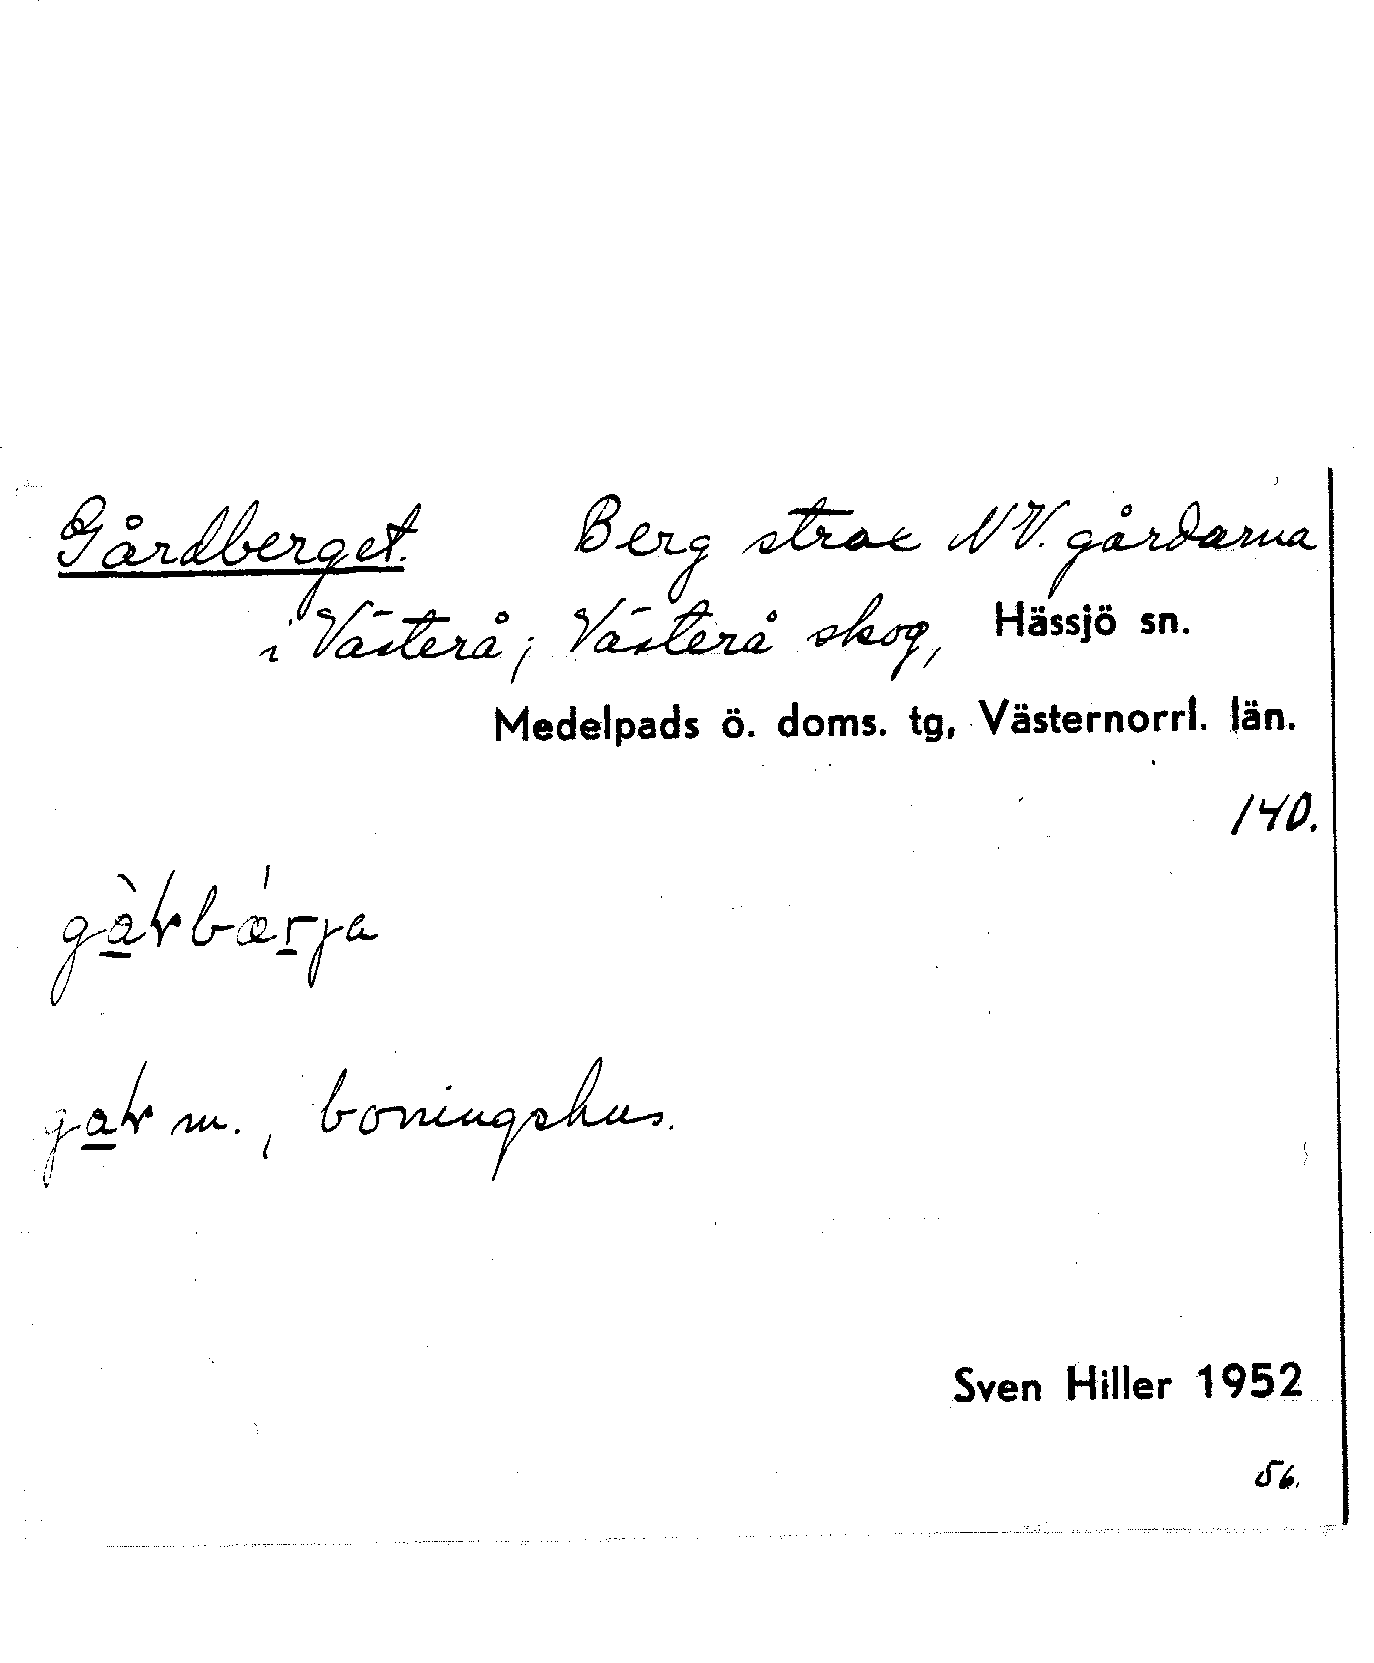 Gårdberget. Berg strax NV. gårdarna
i Västerå; Västerå skog, Hässjö sn.
Medelpads ö. doms. tg, Västernorrl. län.
140.
m., boningshus.
Sven Hiller 1952
56.